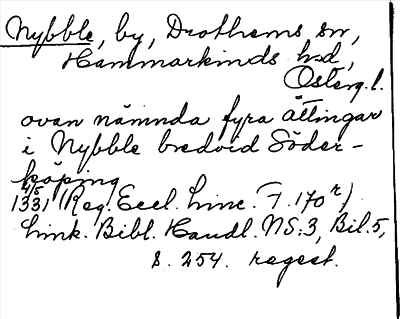 Nybble, by, Drothems sn,
Hammarkinds hd,
Österg. l.
ovan nämnda fyra ättingar
i Nybble bredvid Söder-
köping
4/5
1331 (Reg. Eccl. Linc. T. 170 r)
Link. Bibl. Handl. NS:3, Bil. 5,
s. 254. regest.